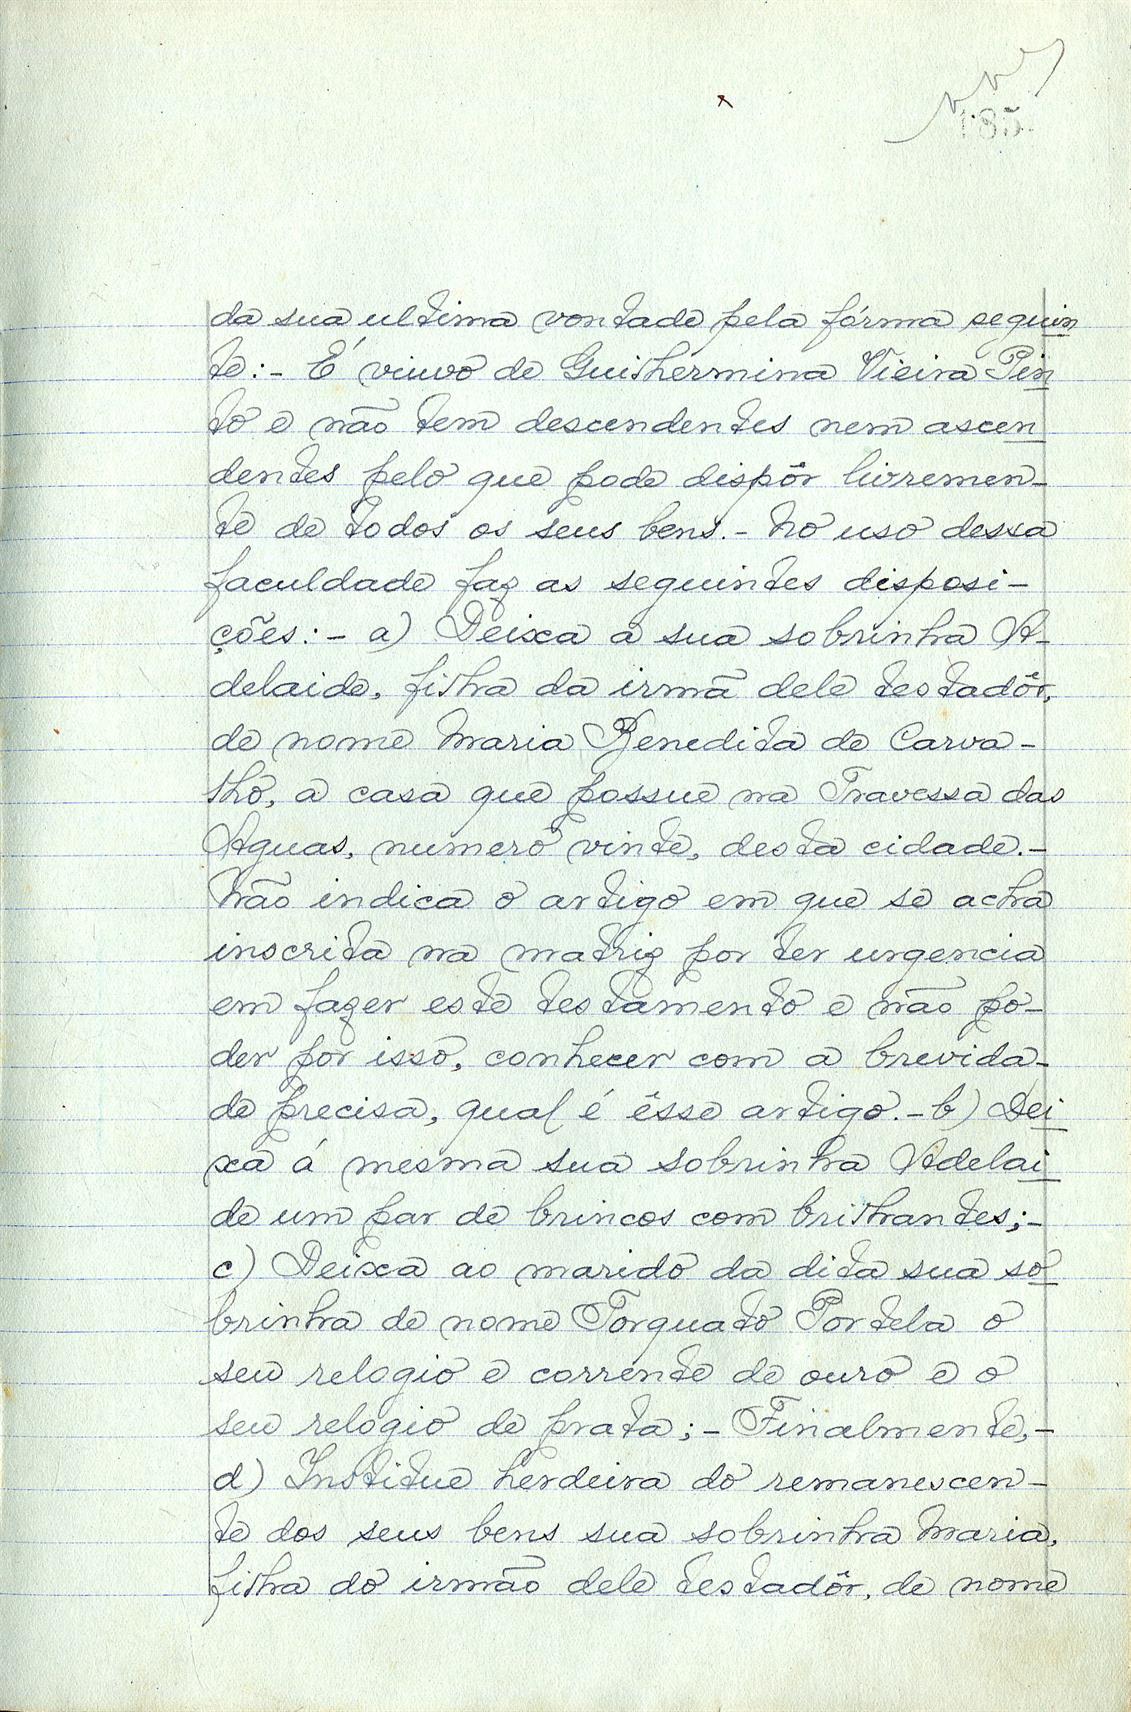 185.
da sua ultima vontade pela fórma seguin
te:- É viuvo de Guilhermina Vieira Pin
to e não tem descendentes nem ascen
dentes pelo que pode dispôr livremen-
te de todos os seus bens.- No uso dessa
faculdade faz as seguintes disposi-
ções:- a) Deixa a sua sobrinha A-
delaide, filha da irmã dele testadôr,
de nome Maria Benedita de Carva-
lho, a casa que possue na Travessa das
Aguas, numero vinte, desta cidade.-
Não indica o artigo em que se acha
inscrita na matriz por ter urgencia
em fazer este testamento e não po-
der por isso, conhecer com a brevida-
de precisa, qual é êsse artigo.- b) Dei
xa á mesma sua sobrinha Adelai
de um par de brincos com brilhantes;-
c) Deixa ao marido da dita sua so
brinha de nome Torquato Portela o
seu relogio e corrente de ouro e o
seu relogio de prata;- Finalmente,-
d) Institue herdeira do remanescen-
te dos seus bens sua sobrinha Maria,
filha do irmão dele testadôr, de nome